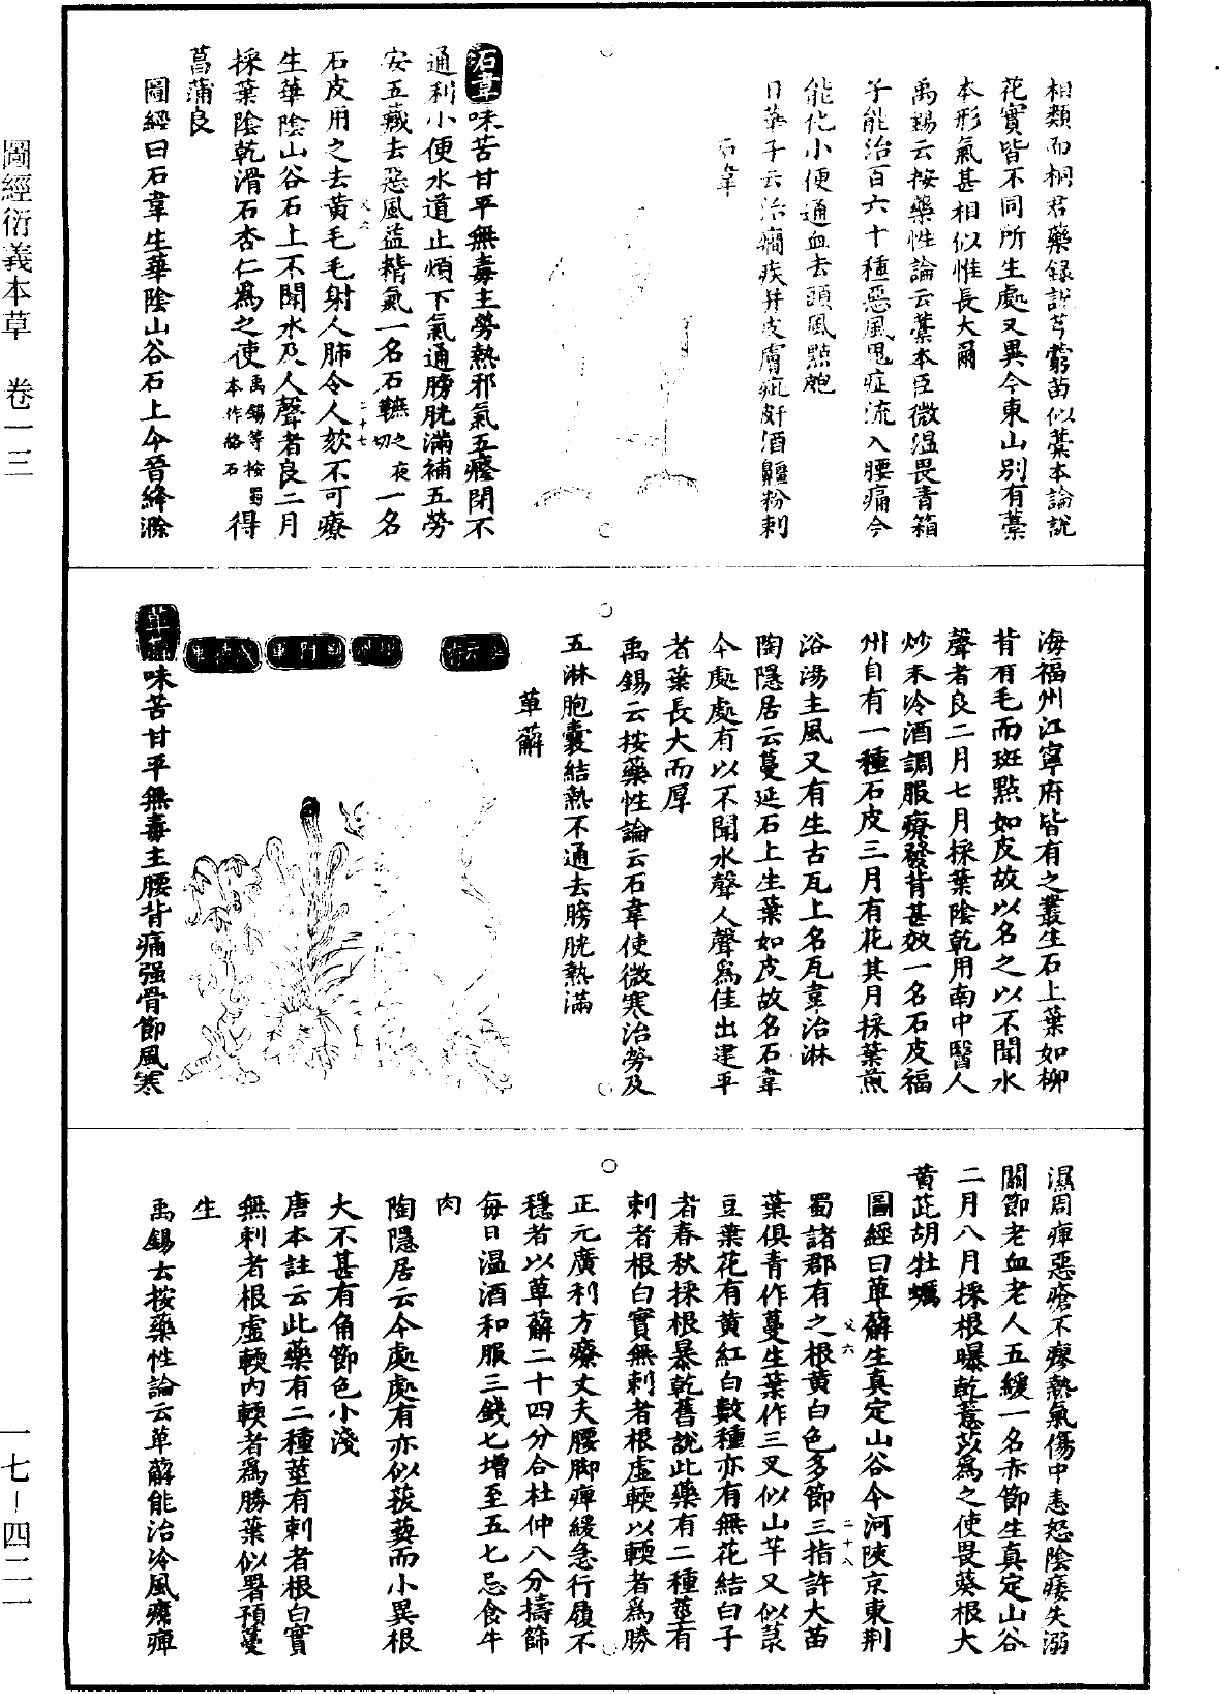 相類而桐君藥録說芎藭苗似藁本論說
花實皆不同所生處又異今東山別有藁
本形氣甚相似惟長大爾
禹錫云按藥性論云藁本臣微溫畏青箱
子能治百六十種惡風鬼疰流入腰痛今
能化小便通血去頭風䵟皰
日華子云治癎疾并皮膚疵皯酒齇粉刺
石韋
石韋味苦甘平無毒主勞熱邪氣五癃閉不
通利小便水道止煩下氣通膀胱滿補五勞
安五藏去惡風益精氣一名石䩾之夜切一名
石皮用之去黃毛毛射人肺令人欬不可療
生華陰山谷石上不聞水及人聲者良二月
採葉陰乾滑石杏仁爲之使禹錫等按蜀本作絡石得
菖蒲良
圖經曰石韋生華陰山谷石上今晉絳滁
海福州江寧府皆有之叢生石上葉如柳
背有毛而斑點如皮故以名之以不聞水
聲者良二月七月採葉陰乾用南中醫人
炒末冷酒調服療發背甚效一名石皮福
州自有一種石皮三月有花其月採葉煎
浴湯主風又有生古瓦上名瓦韋治淋
陶隱居云蔓延石上生葉如皮故名石韋
今處處有以不聞水聲人聲爲佳出建平
者葉長大而厚
禹錫云按藥性論云石韋使微寒治勞及
五淋胞囊結熱不通去膀胱熱滿
萆薢
萆薢味苦甘平無毒主腰背痛强骨節風寒
濕周痺惡瘡不瘳熱氣傷中恚怒陰痿失溺
關節老血老人五緩一名赤節生真定山谷
二月八月採根曝乾薏苡爲之使畏葵根大
黃茈胡牡蠣
圖經曰萆薢生真定山谷今河陝京東荆
蜀諸郡有之根黃白色多節三指許大苗
葉俱青作蔓生葉作三叉似山芋又似菉
豆葉花有黃紅白數種亦有無花結白子
者春秋採根暴乾舊說此藥有二種莖有
刺者根白實無刺者根虛輭以輭者爲勝
正元廣利方療丈夫腰脚痺緩急行履不
穩者以萆薢二十四分合杜仲八分擣篩
每日溫酒和服三錢匕增至五匕忌食牛
肉
陶隱居云今處處有亦似菝葜而小異根
大不甚有角節色小淺
唐本註云此藥有二種莖有刺者根白實
無刺者根虛輭內輭者爲勝葉似署預蔓
生
禹錫云按藥性論云萆薢能治冷風㾏痺
圖經衍義本草　卷一三
一七-四二一